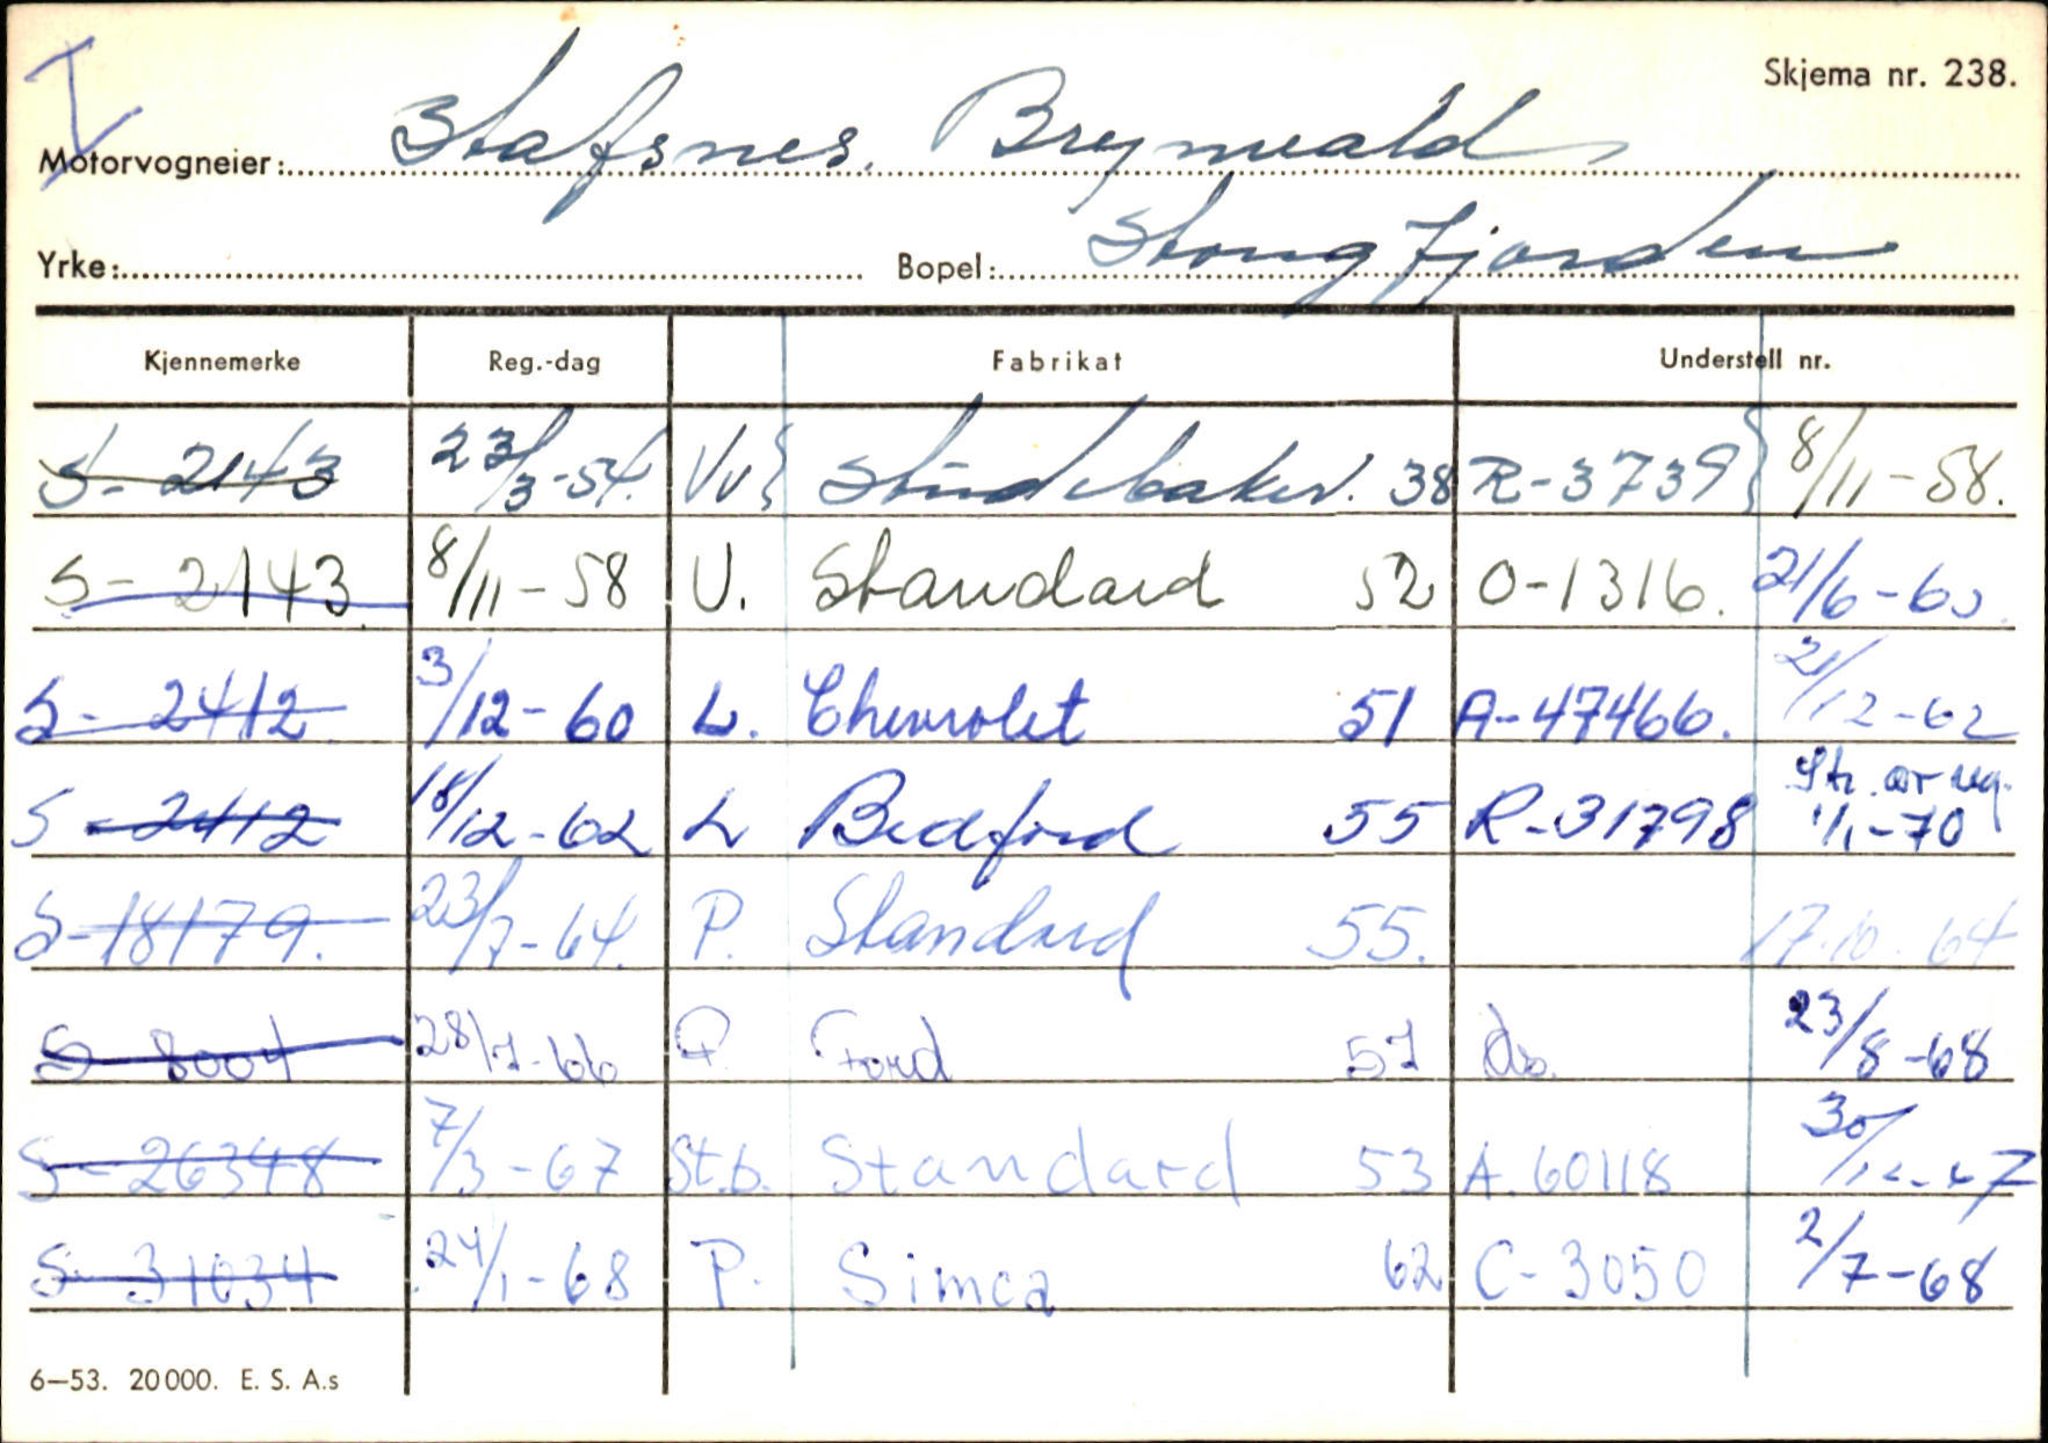 I
Skjema nr. 238.
Motorvogneier: Stafsnes. Brynvald
Yrke: Bopel: Stongfjorden
Kjennemerke Reg.-dag Fabrikat Understell nr.
S-2143 23/3-54. Vv } Studebaker. 38 R-3739 } 8/11-58.
S-2143. 8/11-58 V. Standard 52 O-1316. 21/6-60.
S-2412. 3/12-60 L. Chevrolet 51 A-47466. 21/12-62
S-2412 18/12-62 L Bedford 55 R-31798 Str. av reg. 1/1-70
S-18179. 23/7-64. P. Standard 55. 17.10.64
S-8004 28/7-66 P Ford 57 do. 23/8-68
S-26348 7/3-67 St.b. Standard 53 A.60118 30/12-67
S-31034 24/1-68 P. Simca 62 C-3050 2/7-68
6—53. 20 000. E. S. A.s